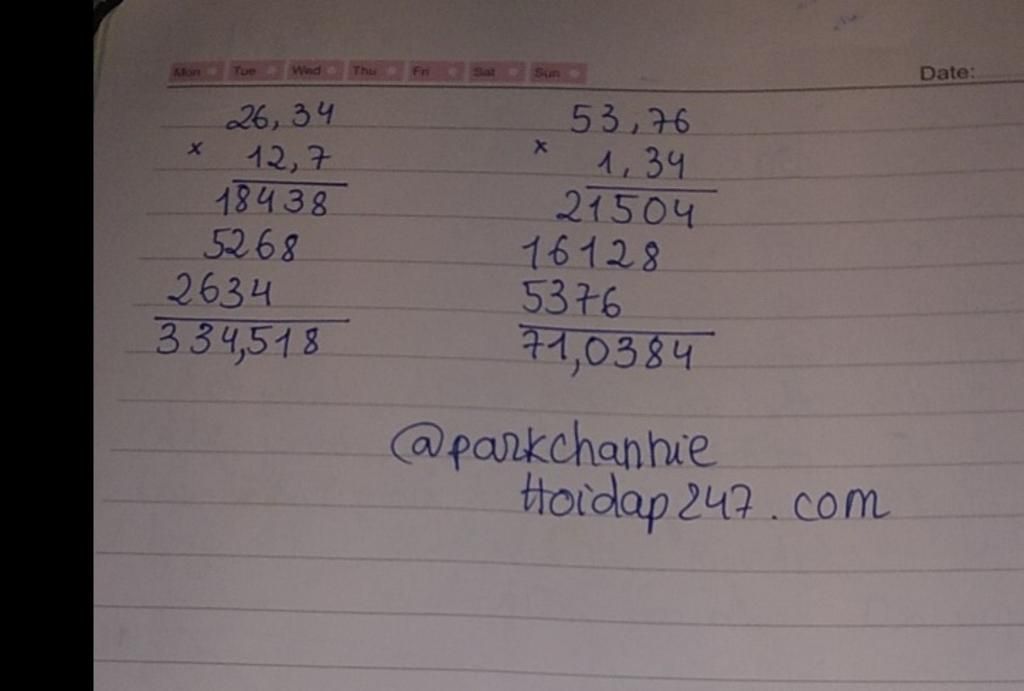 Mon Tue Wed Thu Fri Sat Sun
Date:
26,34
x 12,7
18438
5268
2634
334,518
53,76
x 1,34
21504
16128
5376
71,0384
@parkchannie
Hoidap247.com